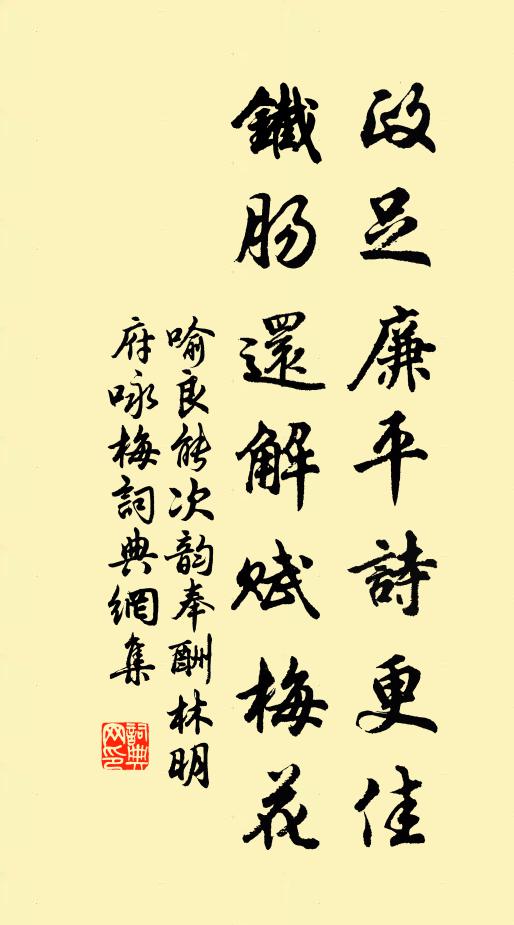 政足廉平詩更佳
鐵腸還解賦梅花
喻良能次韵奉酬林明
府咏梅詞典網集
詞典
网印